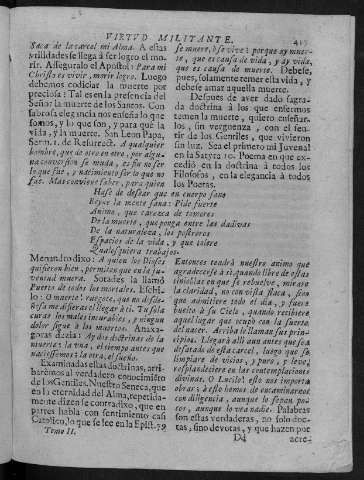 VIRTVD MILITANTE.
Saca de la carcel mi Alma. A estas
vtilidades se llega à ser logro el mo-
rir. Asseguralo el Apostol: Para mi
Christo es vivir, morir logro. Luego
debemos codiciar la muerte por
preciosa: Tal es en la presencia del
Señor la muerte de los Santos. Con
fabrosa elegancia nos enseña lo que
somos, y lo que son, y para què la
vida, y la muerte. San Leon Papa,
Serm. 1. de Resurrect. A qualquier
hombre, que de otro en otro, por algu-
na conversion se muda, es fin no ser
lo que fue, y nacimiento ser lo que no
fue. Mas conviene saber, para quien
se muere, ò se vive: porque ay muer-
te, que es causa de vida, y ay vida,
que es causa de muerte. Debese,
pues, solamente temer esta vida, y
debese amar aquella muerte.
Despues de aver dado sagra-
da doctrina à los que enfermos
temen la muerte, quiero enseñar-
los, sin verguenza, con el sen-
tir de los Gentiles, que vivieron
sin luz. Sea el primero mi Juvenal
en la Satyra 10. Poema en que exce-
diò en la doctrina à todos los
Filosofos, en la elegancia à todos
los Poetas.
Hase de desear que en cuerpo sano
Reyne la mente sana: Pide fuerte
Animo, que carezca de temores
De la muerte, que ponga entre las dadivas
De la naturaleza, los postreros
Espacios de la vida, y que tolere
Qualesquiera trabajos.
Menandro dixo: A quien los Dioses
quisieren bien, permiten que en la ju-
ventud muera. Sotades la llamò
Puerto de todos los mortales. Eschi-
lo: O muerte! ruegote, que no desde-
ñosa me dessees al llegar à ti. Tu sola
curas los males incurables, y ningun
dolor sigue à los muertos. Anaxa-
goras dezia: Ay dos doctrinas de la
muerte: la vna, el tiempo antes que
naciessemos: la otra, el sueño.
Examinadas estas doctrinas, arri-
barèmos al verdadero conocimiẽto
de los Gentiles. Nuestro Seneca, que
en la eternidad del Alma, repetida-
mente dizen se contradixo, que en
partes habla con sentimiento casi
Catolico, lo que se lee en la Epist. 79.
Tomo II.
Entonces tendrà nuestro animo que
agradecerse à sì, quando libre de estas
tinieblas en que se rebuelve, mirare
la claridad, no con vista flaca, sino
que admitiere todo el dia, y fuere
buelto à su Cielo, quando recibiere
aquel lugar que ocupò con la suerte
del nacer. Arriba le llaman sus prin-
cipios. Llegarà allì aun antes que sea
desatado de esta carcel, luego que se
limpiare de vicios, y puro, y leve,
resplandeciere en las contemplaciones
divinas. O Lucilo! esto nos importa
obrar: à esto hemos de encaminarnos
con diligencia, aunque lo sepan po-
cos, aunque lo vea nadie. Palabras
son estas verdaderas, no solo doc-
tas, sino devotas, y que hazen por
Dd
acre-